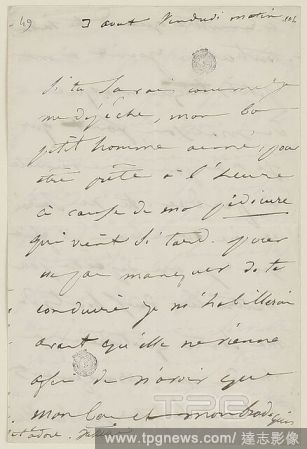 49
7 août Vendredi matin
Si tu savais comme je
me dépêche, mon bon
petit homme aimé, pour
être prête à l'heure
à cause de ma pédicure
qui vient si tard. Pour
ne pas manquer de te
conduire je m'habillerai
avant qu'elle ne vienne
afin de n'avoir que
mon bas et mon brodequin
et t'adore. Juliette
TPG
www.tpgnews.com / 達志影像